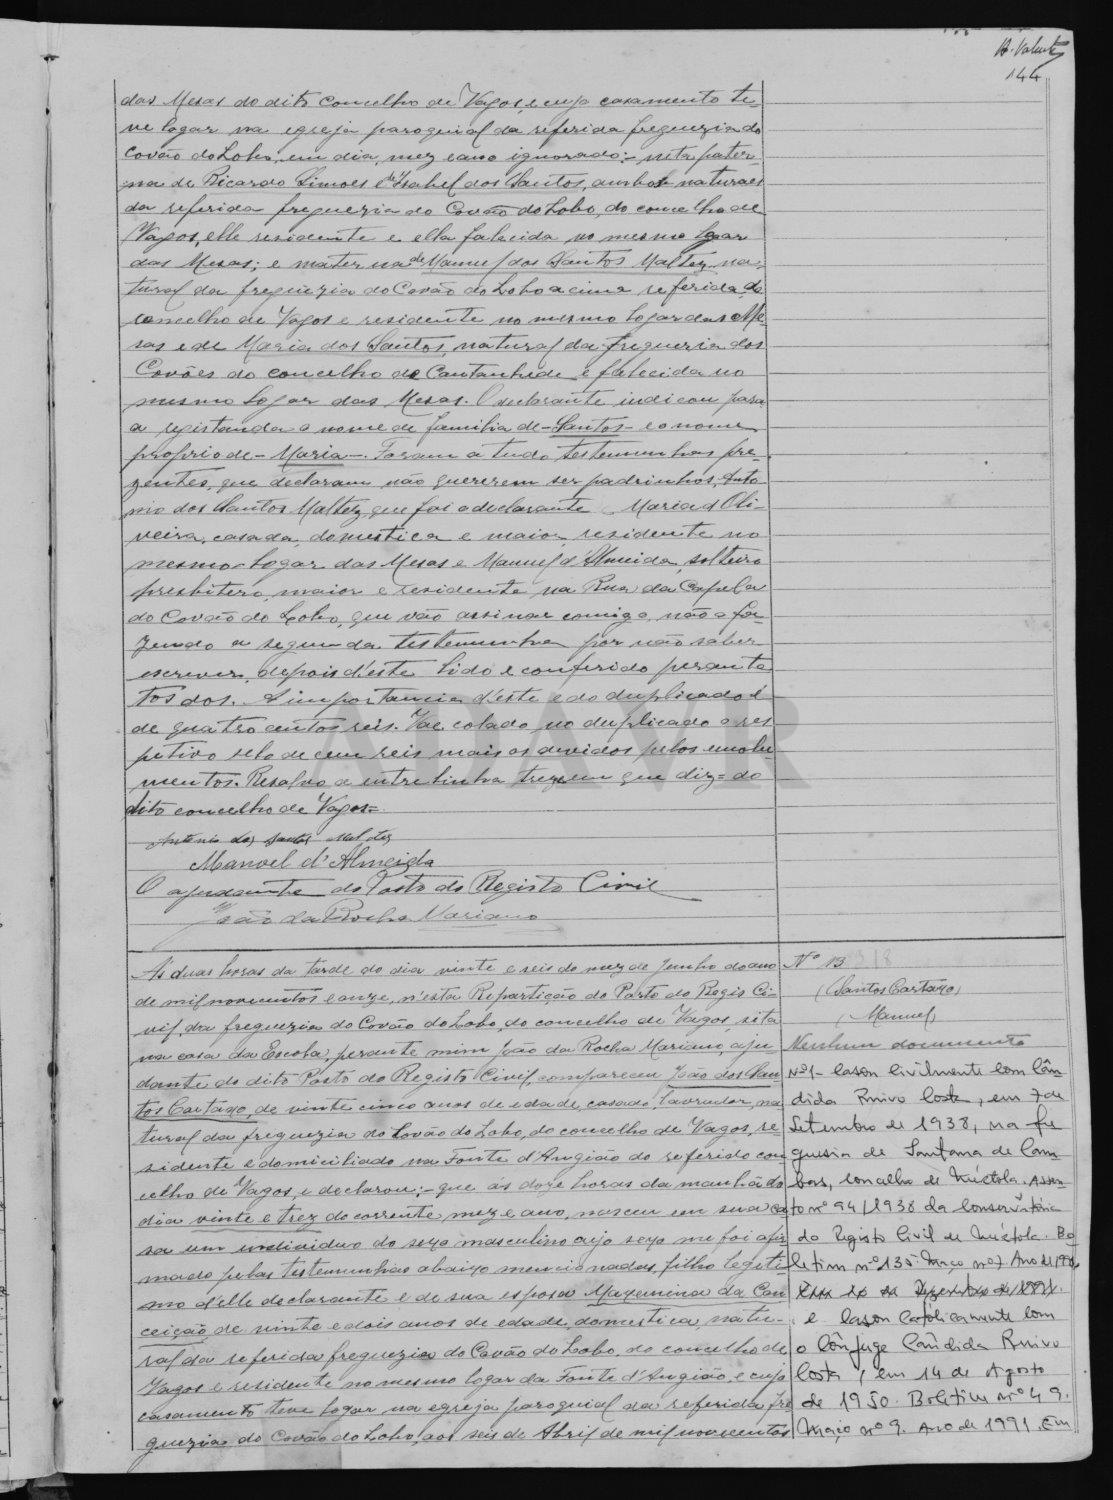 B. Valente
144
das Mesas do dito concelho de Vagos, e cujo casamento te-
ve logar na egreja paroquial da referida freguezia do
Covão do Lobo, em dia, mez e ano ignorado:- neta pater-
na de Ricardo Simoes e de Isabel dos Santos, ambos naturaes
da referida freguezia do Covão do Lobo, do concelho de
Vagos, elle residente e ella falecida no mesmo logar
das Mesas; e materna de Manuel dos Santos Maltez, na-
tural da freguezia do Covão do Lobo acima referida, do
concelho de Vagos e residente no mesmo logar das Me-
sas e de Maria dos Santos, natural da freguezia dos
Covões do concelho de Cantanhede e falecida no
mesmo logar das Mesas. O declarante indicou para
a registanda o nome de familia de - Santos - e o nome
proprio de - Maria -. Foram a tudo testemunhas pre-
zentes, que declaram não quererem ser padrinhos, Anto-
nio dos Santos Maltez, que foi o declarante, Maria d'Oli-
veira, casada, domestica e maior, rezidente no
mesmo logar das Mesas e Manuel d'Almeida, solteiro
presbitero, maior e residente na Rua da Capela
do Covão do Lobo, que vão assinar comigo, não o fa-
zendo a segunda testemunha por não saber
escrever, depois d'este lido e conferido perante
todos. A importancia d'este e do duplicado é
de quatro centos reis. Vae colado no duplicado o res
petivo selo de cem reis mais os devidos pelos emolu
mentos. Resalvo a entrelinha treze em que diz = do
dito concelho de Vagos =
Antonio dos Santos Maltez
Manoel d'Almeida
O ajudante do Posto do Registo Civil
João da Rocha Mariano
A's duas horas da tarde do dia vinte e seis do mez de Junho do ano
de mil novecentos e onze, n'esta Repartição do Posto do Regis Ci-
vil, da freguezia do Covão do Lobo, do concelho de Vagos, sita
na casa da Escola, perante mim João da Rocha Mariano, aju
dante do dito Posto do Registo Civil, compareceu João dos San
tos Cartágo, de vinte cinco anos de edade, casado, lavrador, na
tural da freguezia do Covão do Lobo, do concelho de Vagos, re-
sidente e domiciliado na Fonte d'Angião do referido con
celho de Vagos, e declarou:- que ás doze horas da manhã do
dia vinte e trez do corrente mez e ano, nasceu em sua ca
sa um individuo do sexo masculino cujo sexo me foi afir
mado pelas testemunhas abaixo mencionadas, filho legiti-
mo d'elle declarante e de sua esposa Maxemina da Con
ceição, de vinte e dois anos de edade, domestica, natu-
ral da referida freguezia do Covão do Lobo, do concelho de
Vagos e residente no mesmo logar da Fonte d'Angião, e cujo
casamento teve logar na egreja paroquial da referida fre
guezia do Covão do Lobo, aos seis de Abril de mil novecentos
Nº 13
(Santos Cartágo)
(Manuel)
Nenhum documento
Nº1 - Casou civilmente com Cân-
dida Ruivo Costa, em 7 de
Setembro de 1938, na fre
guesia de Santana de Cam-
bas, concelho de Mértola. Assen-
to nº 94/1938 da Conservatória
do Registo Civil de Mértola. Bo
letim nº 135 Maço nº 7 Ano de 1991.
e casou catolicamente com
o cônjuge Cândida Ruivo
Costa, em 14 de Agosto
de 1950. Boletim nº 49.
Maço nº 9. Ano de 1991. Em